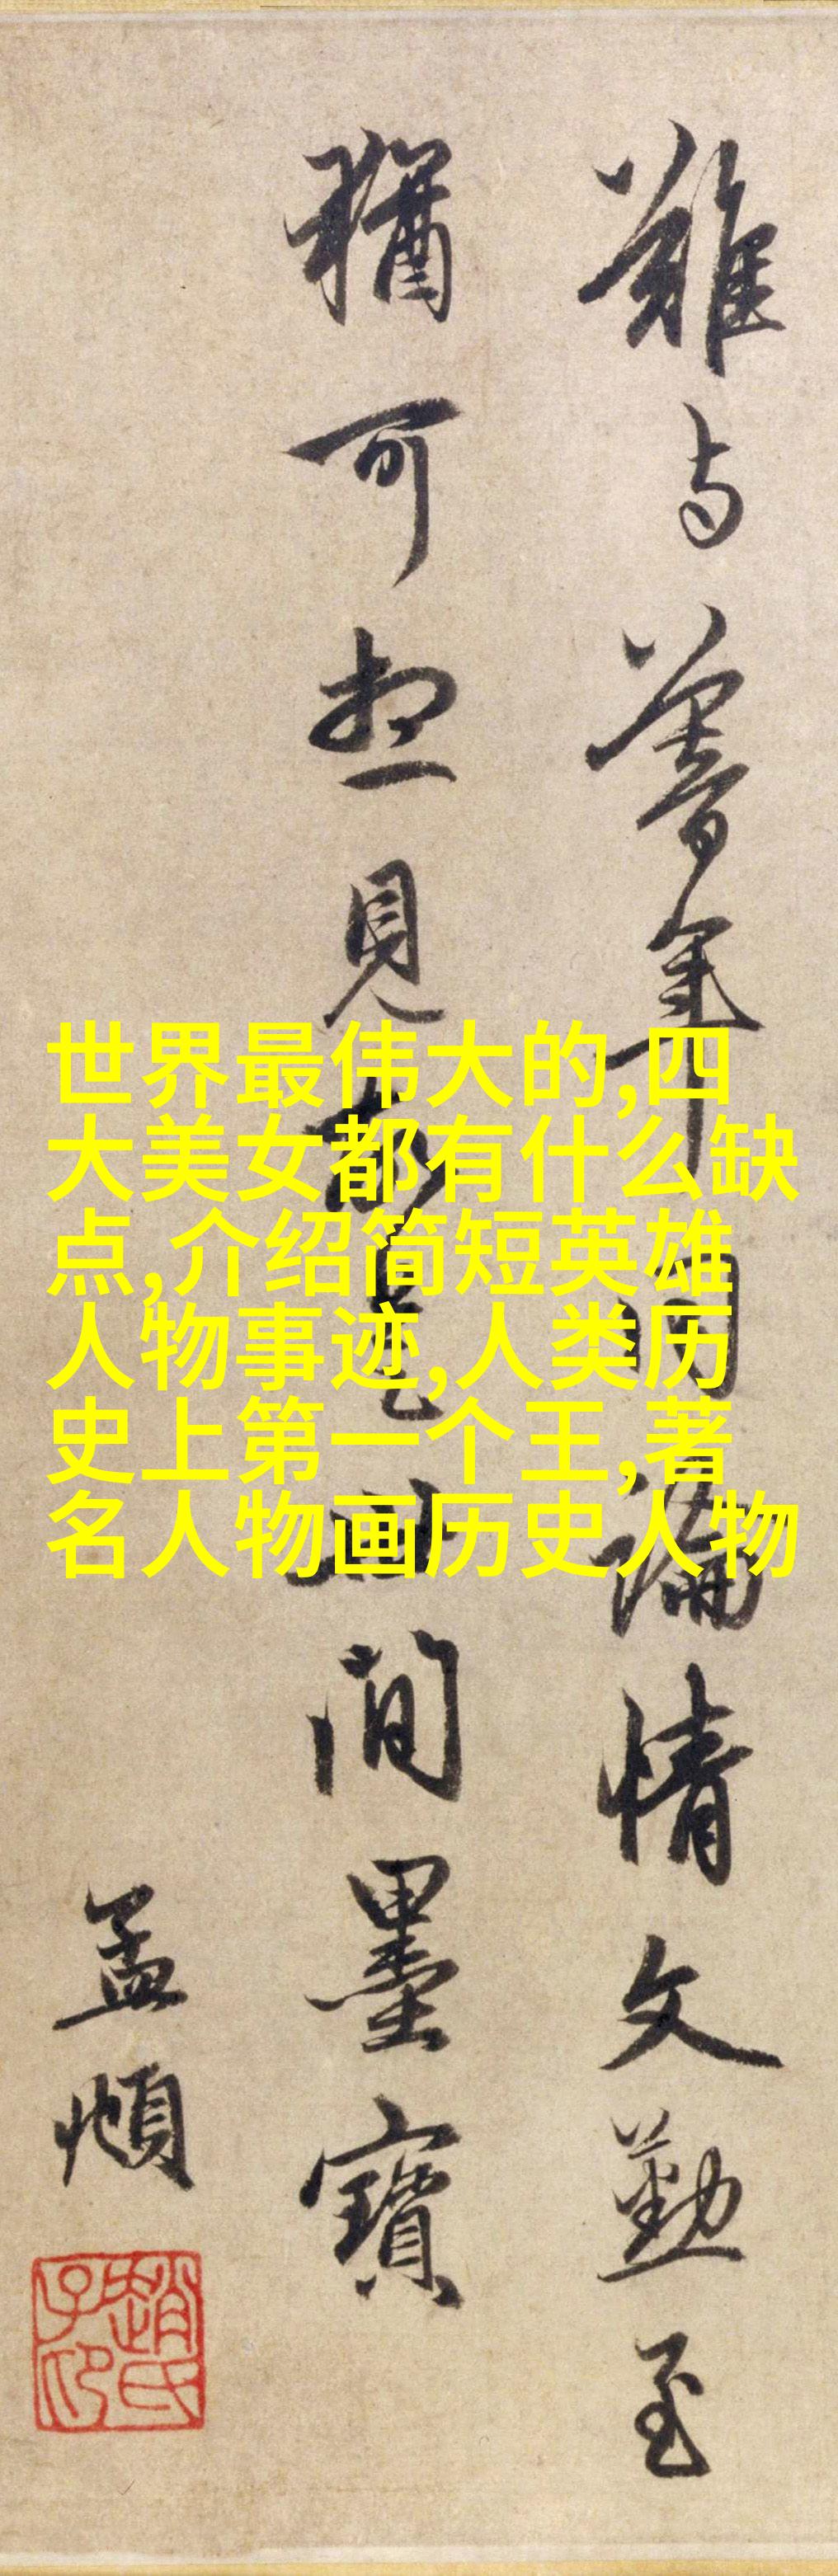 難与暮年同論情文勤至
猶可想見故是世間墨寶
孟頫
趙氏
子卬
世界最伟大的,四
大美女都有什么缺
点,介绍简短英雄
人物事迹,人类历
史上第一个王,著
名人物画历史人物